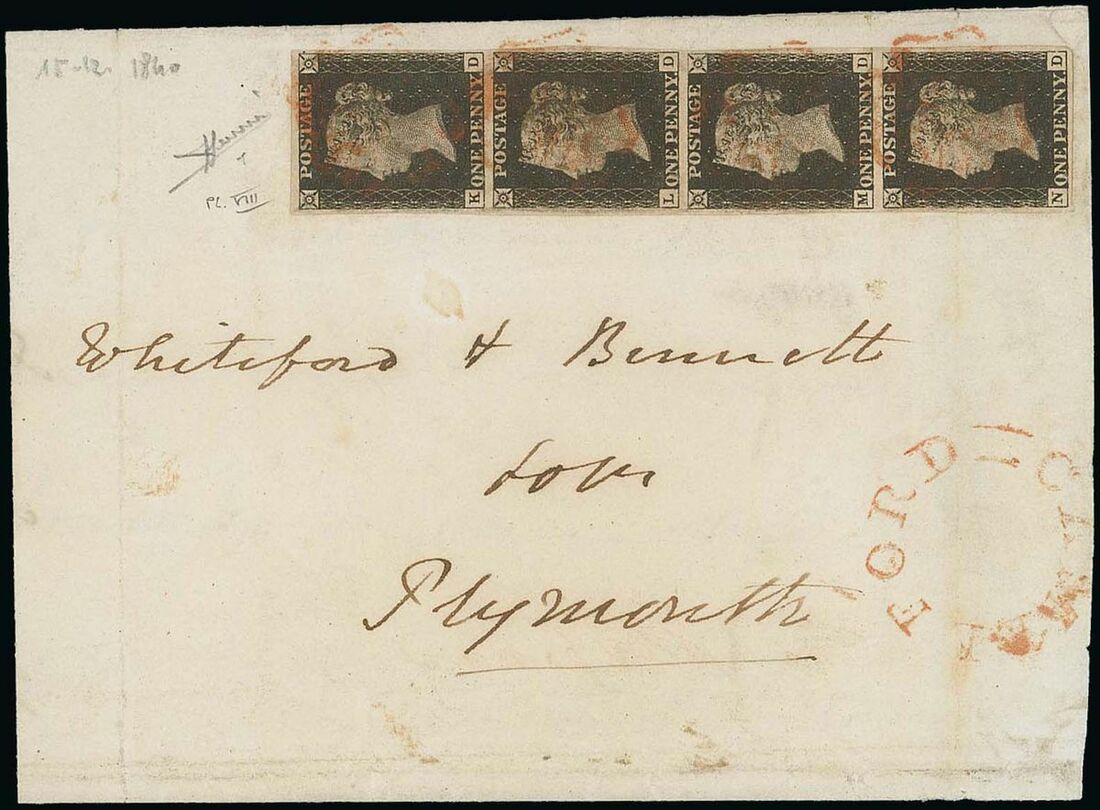 15-12- 1840
PL. VIII
POSTAGE ONE PENNY K D
POSTAGE ONE PENNY L D
POSTAGE ONE PENNY M D
POSTAGE ONE PENNY N D
Whiteford & Bennett
Plymouth
FORD